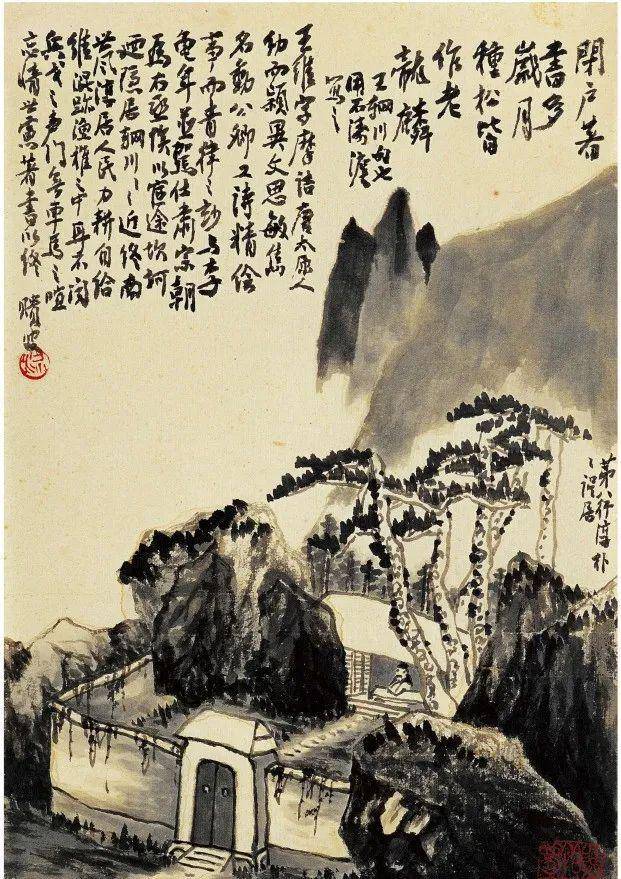 閉戶著
書多
歲月
種松皆
作老
龍鱗
王輞川句也
用石濤灋
寫之
王維字摩詰唐太原人
幼而穎異文思敏雋
名動公卿工詩精繪
事而音律之妙与李
龜年並駕仕肅宗朝
為右丞後以宦途坎坷
廼隱居輞川之近終南
其風淳居人民力耕自給
維混跡漁樵之中耳不聞
兵戈之聲門無車馬之喧
忘情世慮著書以終
第八行淳朴
之誤居